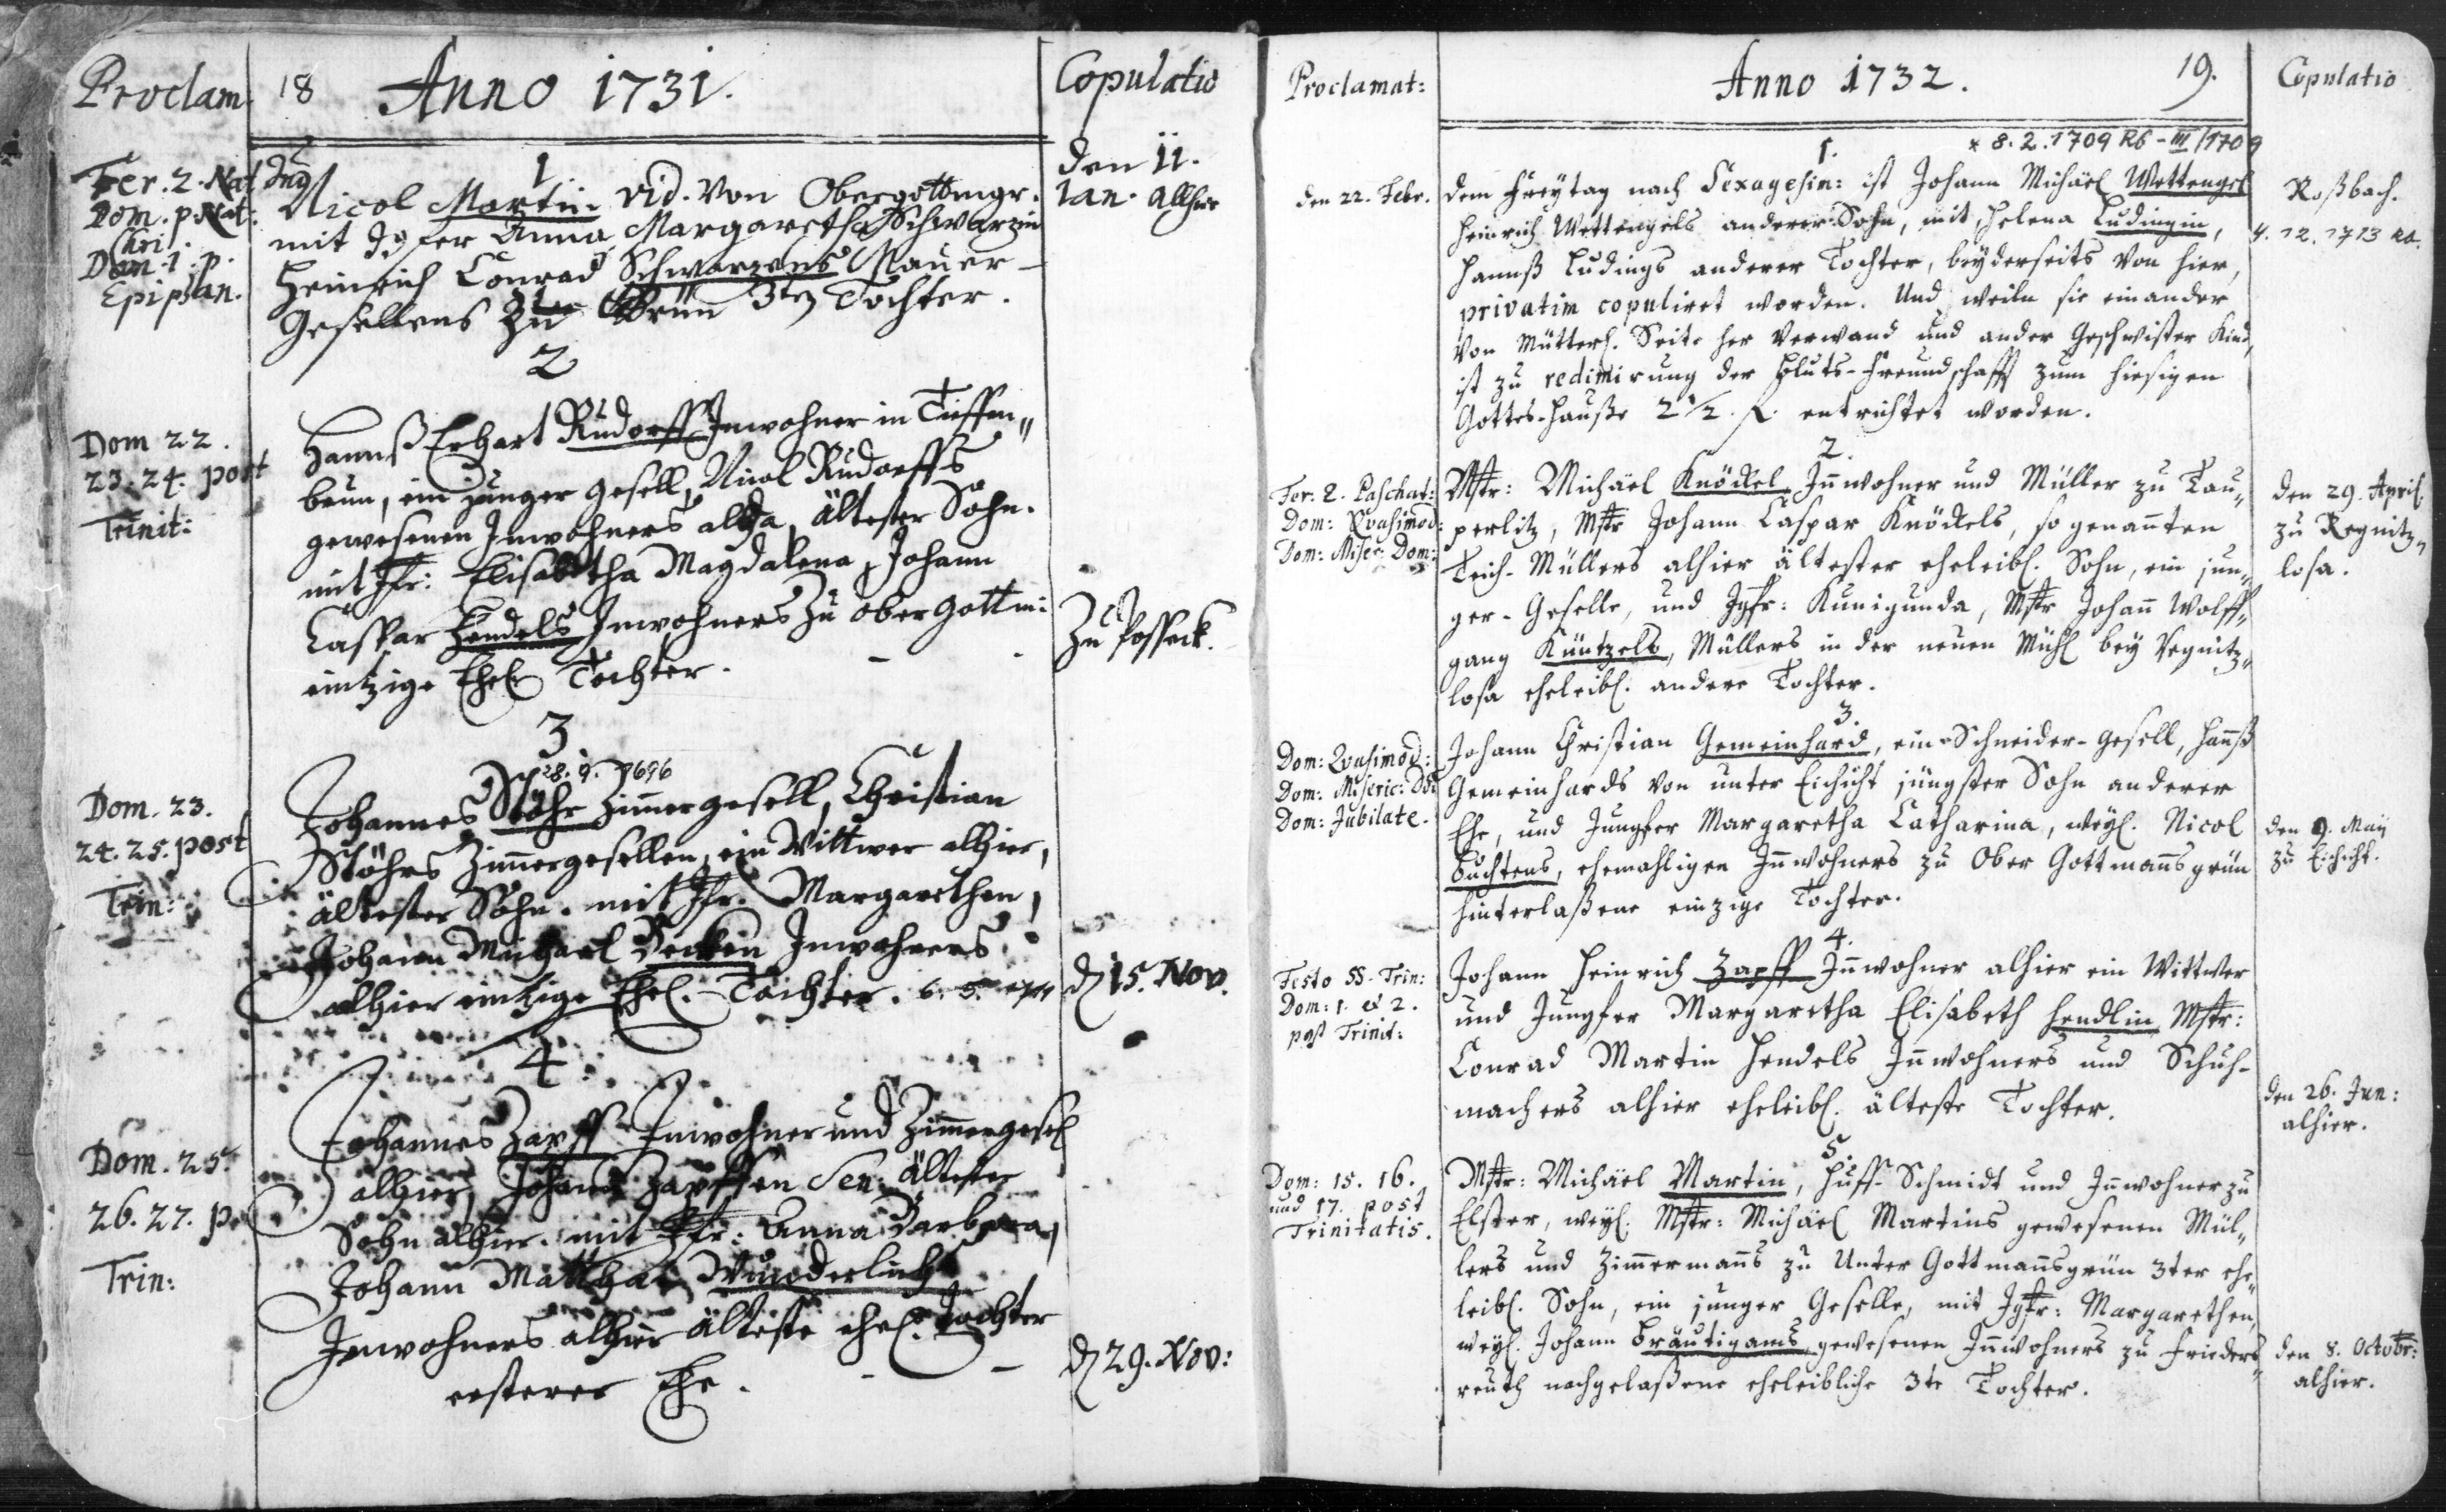 Proclam. 18 Anno 1731. Copulatio
1
Fer. 2. Nat. Dnj
Dom. p. Nat:
Chri.
Dom. 1. p.
Epiphan.
Nicol Martin vid. von Obergottmgr.
mit Jgfer Anna Margaretha Schwarzin
Heinrich Conrad Schwarzens Mauer-
Gesellens zu Grün 3ten Tochter.
den 11.
Jan. allhier
2
Dom 22.
23. 24. post
Trinit:
Hannß Erhart Rudorff Inwohner in Tieffen„
brun, ein junger Gesell, Nicol Rudorffs
gewesenen Inwohners allda, ältester Sohn.
mit Jfr: Elisabetha Magdalena, Johann
Caspar Hendels Inwohners zu ober Gottm:
eintzige Ehel. Tochter.
zu Posseck.
3
28. 9. 1696
Dom. 23.
24. 25. post
Trin:
Johannes Stöhr Zimmergesell, Christian
Stöhrs Zimmergesellen, ein Wittwer alhier,
ältester Sohn. mit Jfr. Margarethen,
Johann Michael Inwohners
alhier eintzige Ehel. Tochter. 6. 5.
d. 15. Nov.
4
Dom. 25.
26. 27. p.
Trin:
Johannes Zapff Inwohner und Zimmergesel
alhier, Johann Zapffen Sen. ältester
Sohn alhier. mit Jfr: Anna Barbara,
Johann Matthai Wunderlichs
Inwohners alhier älteste ehel. Tochter
ersterer Ehe.
d. 29. Nov:
Proclamat: Anno 1732. 19. Copulatio
1. * 8. 2. 1709 Rb - III/1709
den 22. Febr.
dem Freytag nach Sexagesin: ist Johann Michäel Wettengel
Heinrich Wettengels anderer Sohn, mit Helena Ludingin,
Hannß Ludings anderer Tochter, beyderseits von hier,
privatim copuliret worden. Und weiln sie einander
von Mütterl. Seite her verwand und ander Geschwister Kind,
ist zu redimirung der Bluts-Freundschafft zum hiesigen
Gottes-Hauße 2 1/2. f. entrichtet worden.
Roßbach.
4. 12. 1713 Rb.
2.
Fer. 2. Paschat:
Dom: Qvasimod:
Dom: Miser: Dom:
Mstr: Michäel Knöckel Innwohner und Müller zu Tau„
perlitz, Mstr Johann Caspar Knöckels, so genannten
Teich-Müllers alhier ältester eheleibl. Sohn, ein jun„
ger-Geselle, und Jgfr: Kunigunda, Mstr Johann Wolff„
gang Küntzels, Müllers in der neuen Mühl bey Regnitz„
losa eheleibl. andere Tochter.
den 29. April.
zu Regnitz„
losa.
3.
Dom: Qvasimod:
Dom: Miseric: Dni
Dom: Jubilate.
Johann Christian Gemeinhard, ein Schneider-Gesell, Hannß
Gemeinhards von unter Eichicht jüngster Sohn anderer
Ehe, und Jungfer Margaretha Catharina, weyl. Nicol
Buchtens, ehemahligen Innwohners zu Ober Gottmannsgrün
hinterlaßene einzige Tochter.
den 9. Maij
zu Eichicht.
4.
Festo SS. Trin:
Dom: 1. & 2.
post Trinit:
Johann Heinrich Zapff Innwohner alhier ein Wittwer
und Jungfer Margaretha Elisabeth Hendlin Mstr:
Conrad Martin Hendels Innwohners und Schuh-
machers alhier eheleibl. älteste Tochter.
den 26. Jun:
alhier.
5.
Dom: 15. 16.
und 17. post
Trinitatis.
Mstr: Michäel Martin, Huff-Schmidt und Innwohner zu
Elster, weyl. Mstr: Michäel Martins gewesenen Mül„
lers und Zimmermanns zu Unter Gottmannsgrün 3ter ehe„
leibl. Sohn, ein junger Geselle, mit Jgfr: Margarethen,
weyl. Johann Bräutigams gewesenen Innwohners zu Frieders„
reuth nachgelaßene eheleibliche 3te Tochter.
den 8. Octobr:
alhier.